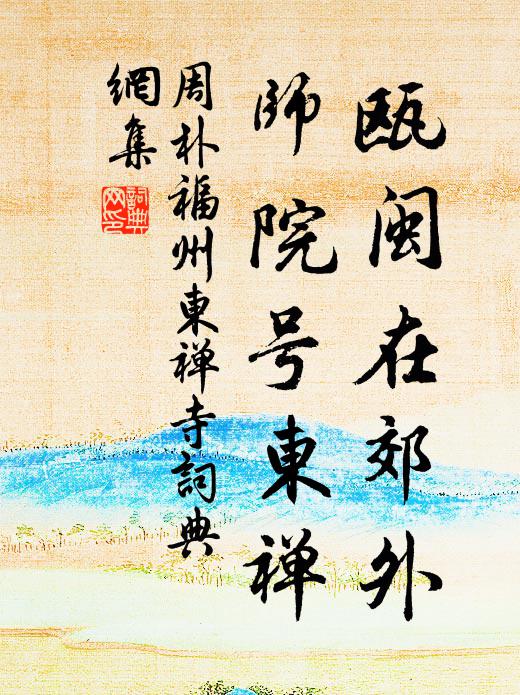 甌闽在郊外
師院号東禅
周朴福州東禅寺詞典
網集
詞典
网印